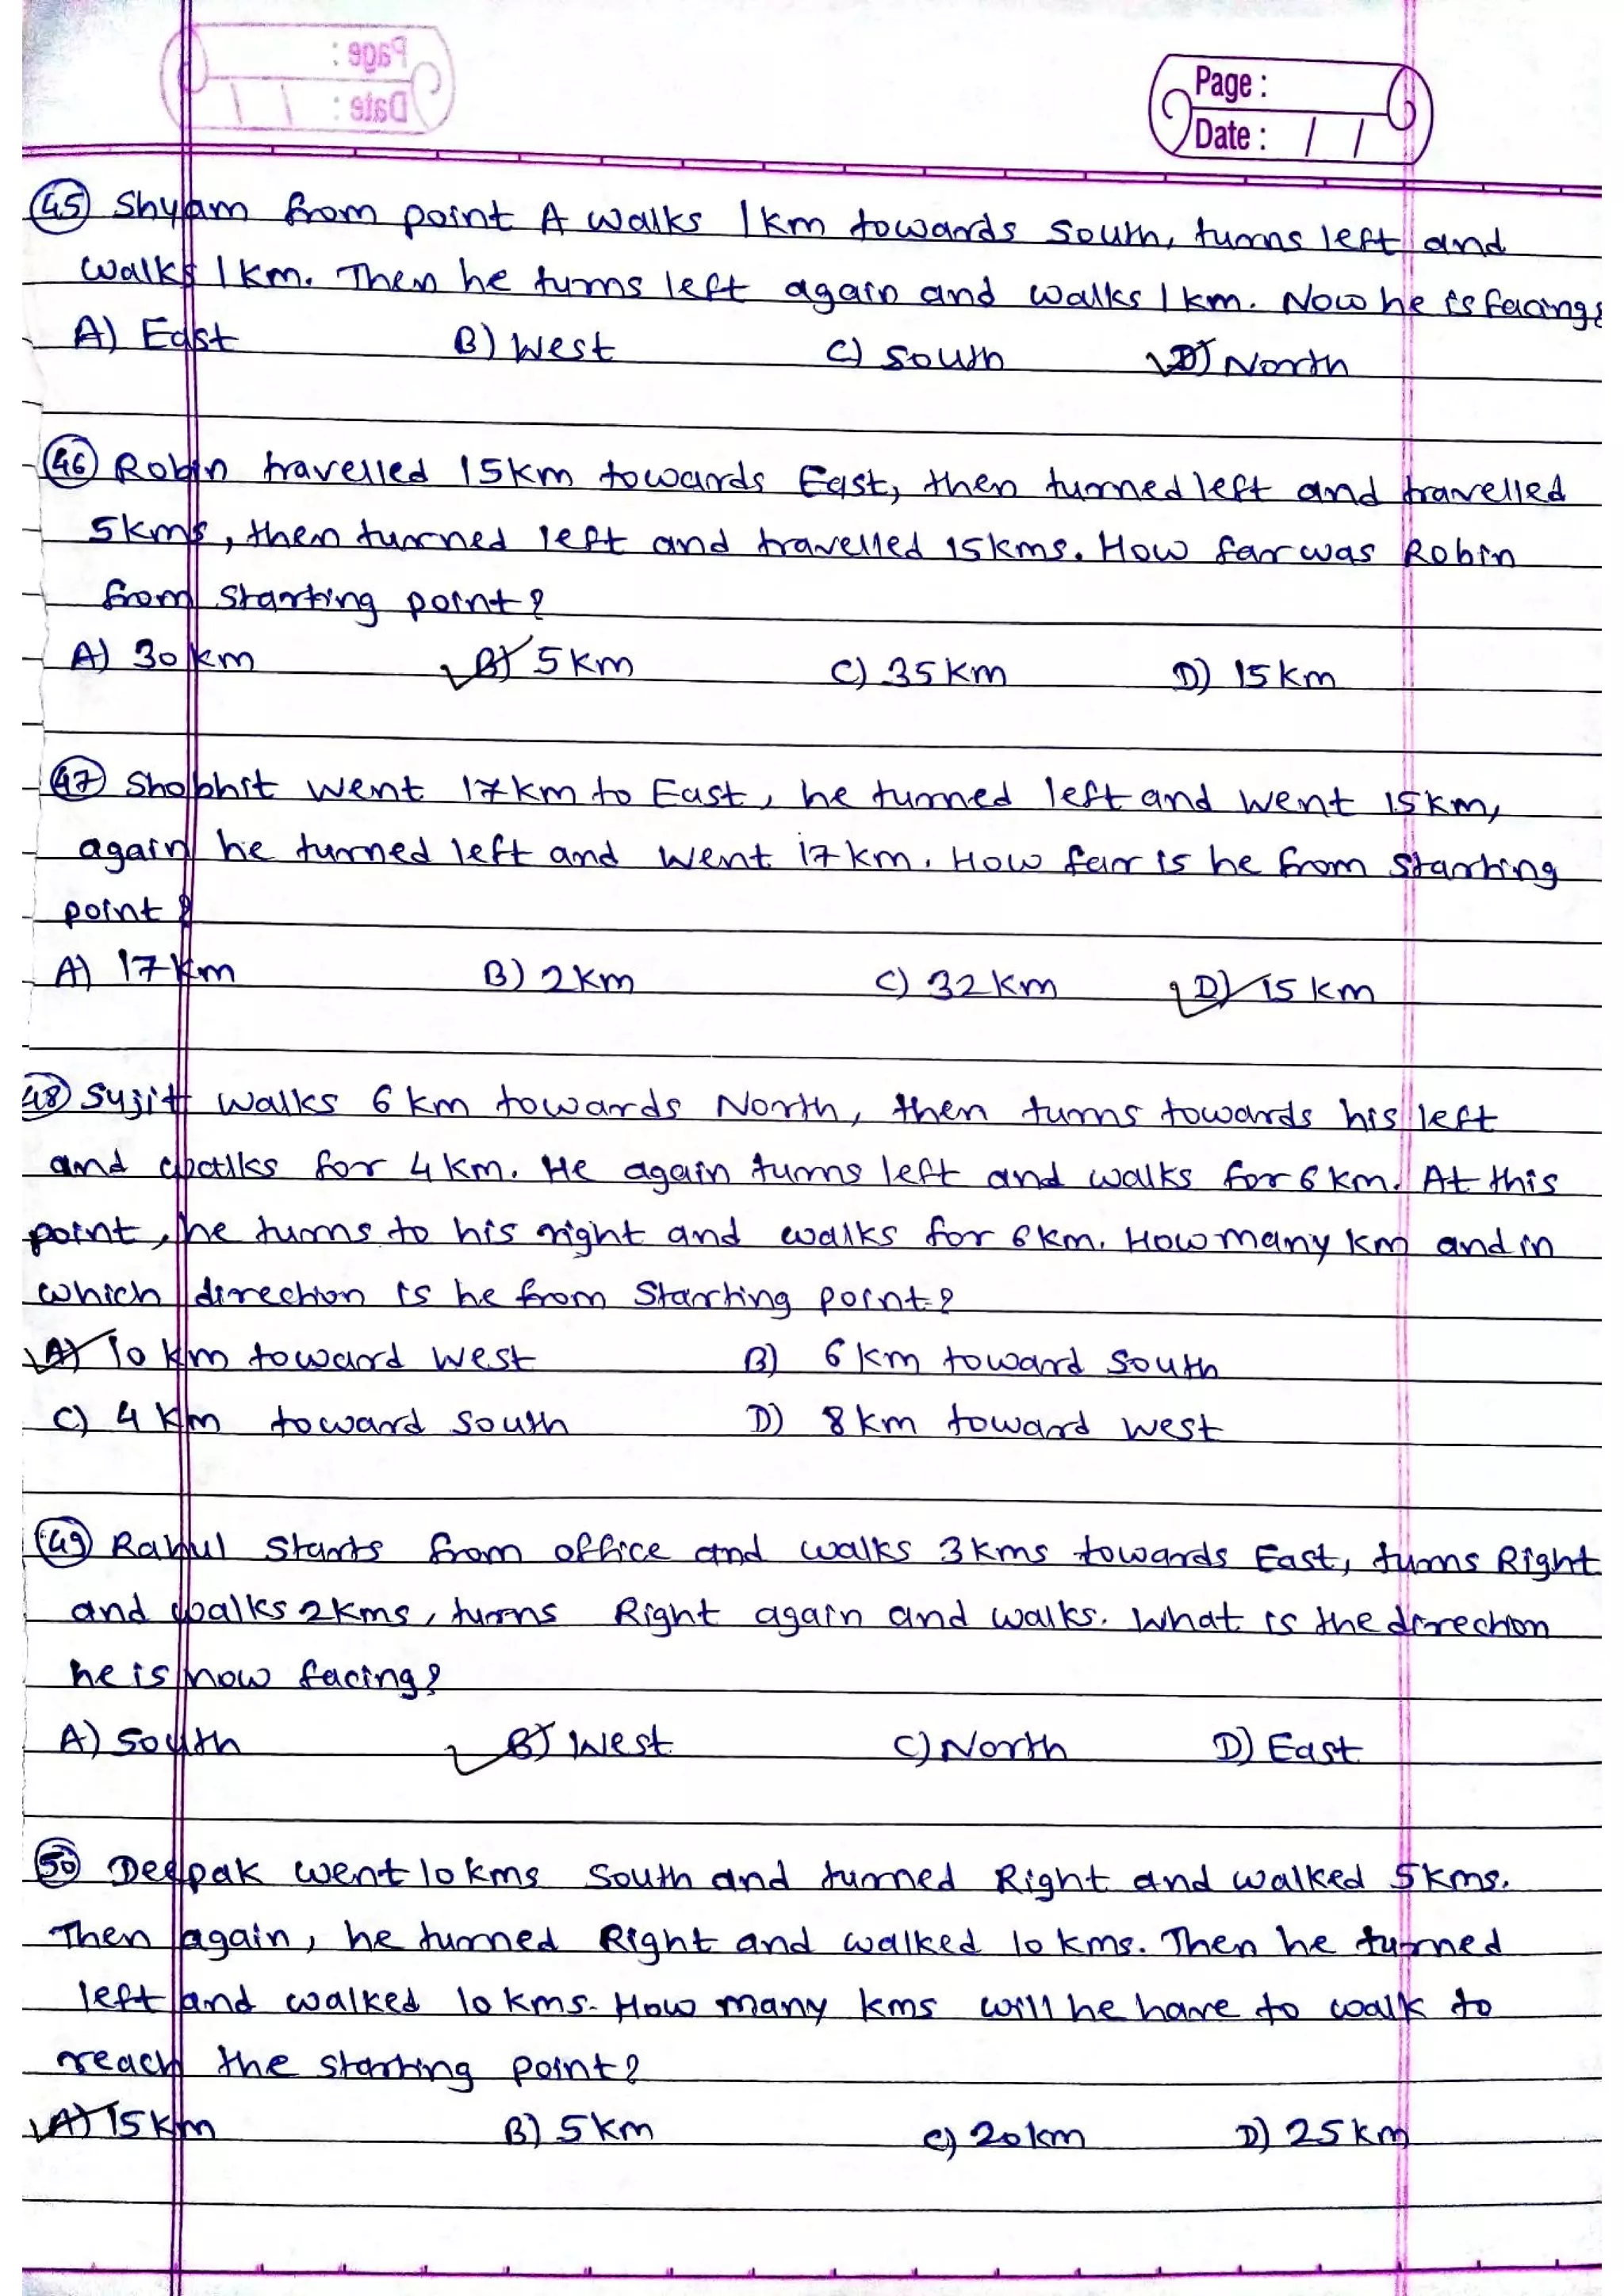 Page :
Date : / /
Page :
Date : / /
45 Shyam from point A walks 1km towards South, turns left and
walks 1km. Then he turns left again and walks 1km. Now he is facing:
A) East B) West C) South D) North
46 Robin travelled 15km towards East, then turned left and travelled
5kms, then turned left and travelled 15kms. How far was Robin
from starting point?
A) 30km B) 5km C) 35km D) 15km
47 Shobhit went 17km to East, he turned left and went 15km,
again he turned left and went 17km. How far is he from starting
point?
A) 17km B) 2km C) 32km D) 15km
48 Sujit walks 6km towards North, then turns towards his left
and walks for 4km. He again turns left and walks for 6km. At this
point, he turns to his right and walks for 6km. How many km and in
which direction is he from Starting point?
A) 10km toward West B) 6km toward South
C) 4km toward South D) 8km toward West
49 Rahul Starts from office and walks 3kms towards East, turns Right
and walks 2kms, turns Right again and walks. What is the direction
he is now facing?
A) South B) West C) North D) East
50 Deepak went 10kms South and turned Right and walked 5kms.
Then again, he turned Right and walked 10kms. Then he turned
left and walked 10kms. How many kms will he have to walk to
reach the starting point?
A) 15km B) 5km C) 20km D) 25km